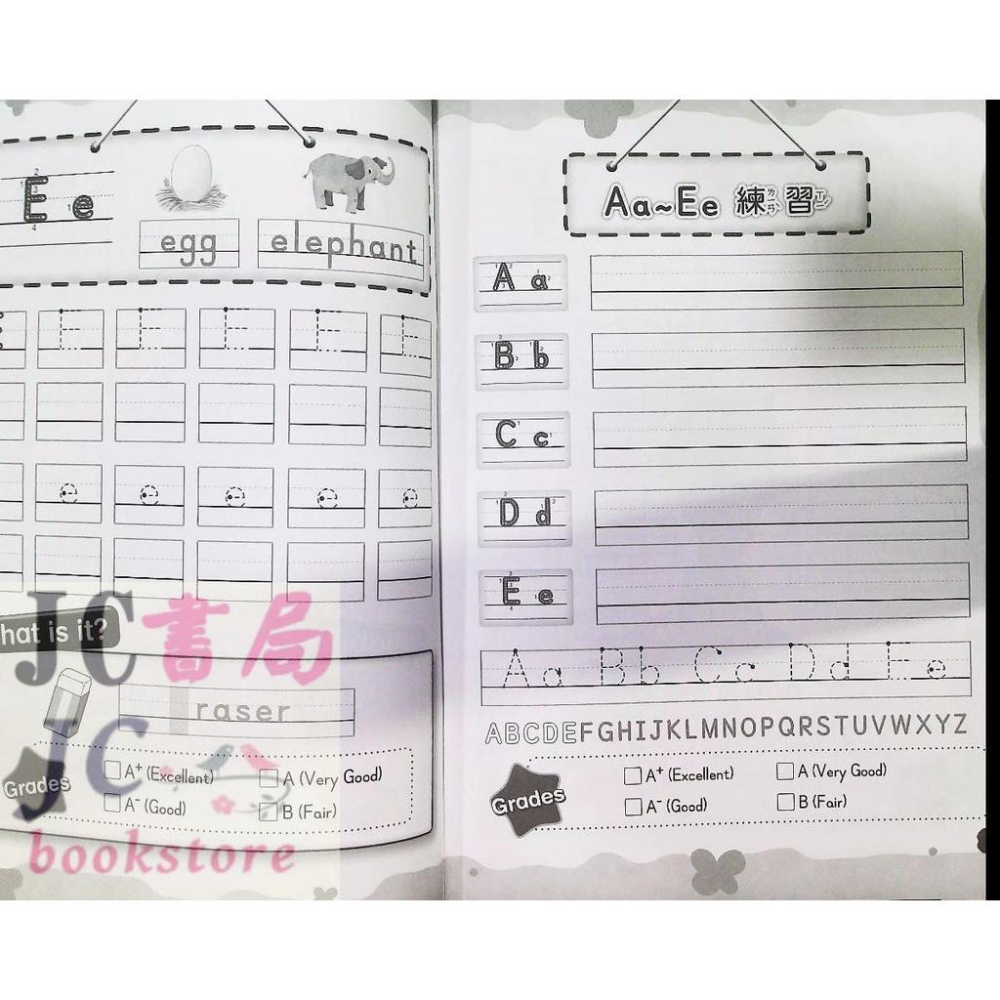 E e
egg elephant
E E E E E
e e e e e
hat is it?
raser
Grades
A+ (Excellent) A (Very Good)
A- (Good) B (Fair)
JC書局
JC
bookstore
Aa~Ee 練習
A a
B b
C c
D d
E e
A a B b C c D d E e
ABCDEFGHIJKLMNOPQRSTUVWXYZ
Grades
A+ (Excellent) A (Very Good)
A- (Good) B (Fair)